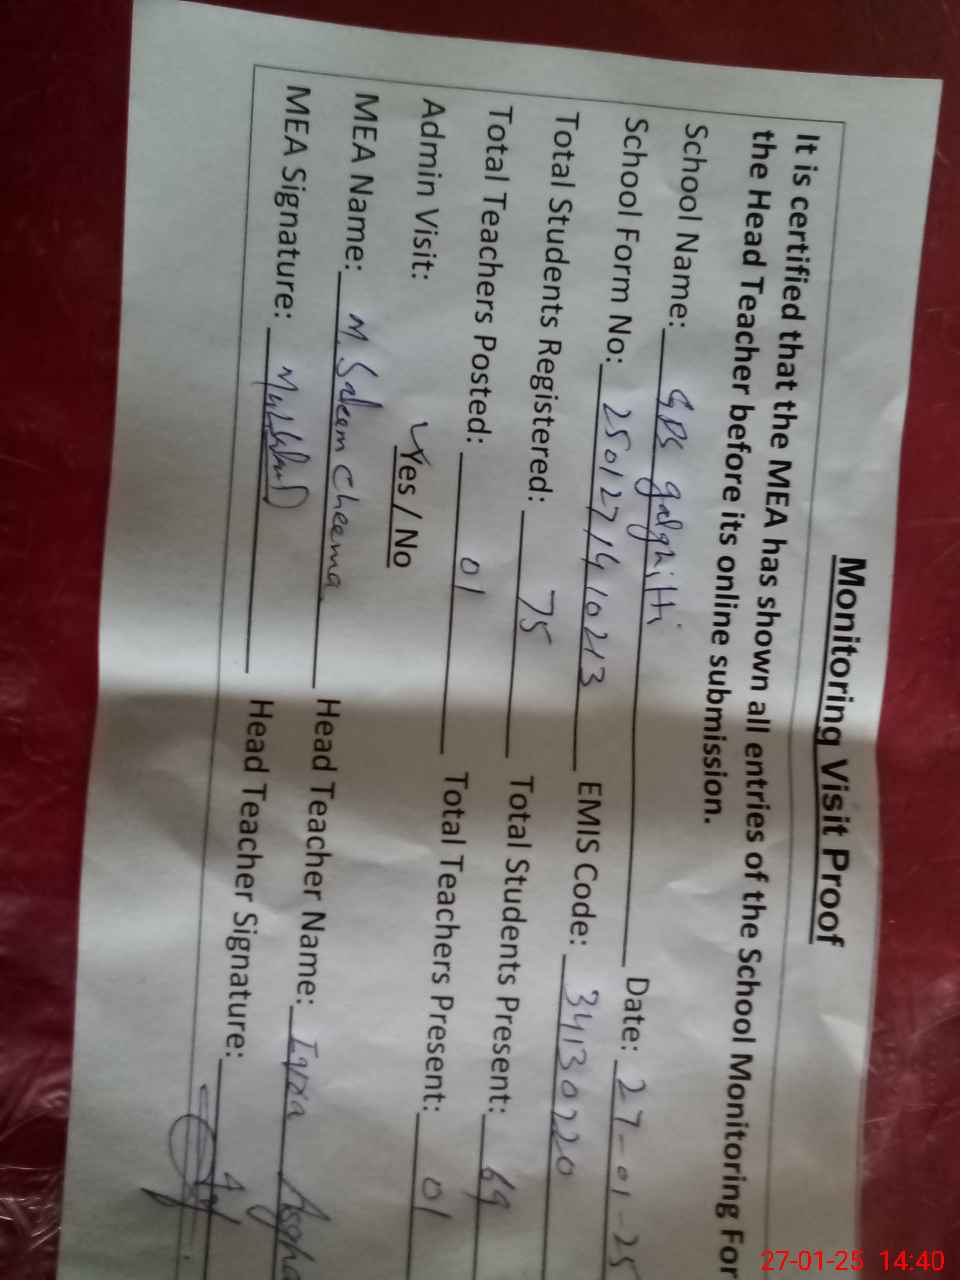 Monitoring Visit Proof
It is certified that the MEA has shown all entries of the School Monitoring For
the Head Teacher before its online submission.
School Name: GPS galghitti Date: 27-01-25
School Form No: 2501271410213 EMIS Code: 34130220
Total Students Registered: 75 Total Students Present: 69
Total Teachers Posted: 01 Total Teachers Present: 01
Admin Visit: Yes / No
MEA Name: M. Saleem Cheema Head Teacher Name: Iqra
MEA Signature: Head Teacher Signature:
27-01-25 14:40